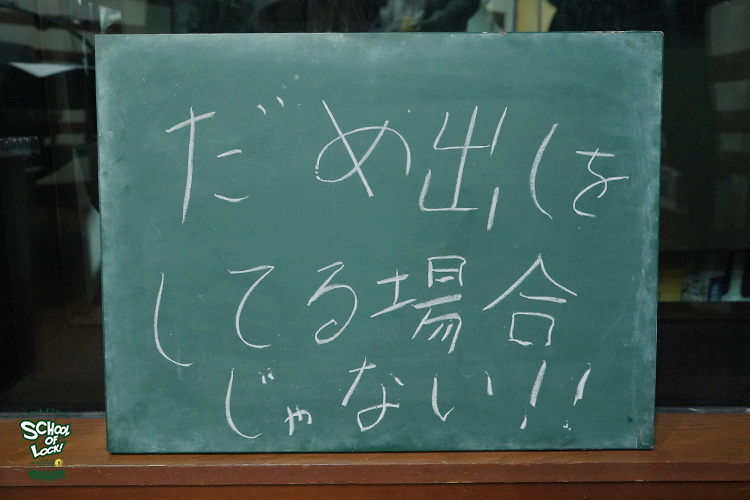 だめ出しを
してる場合
じゃない!!
SCHOOL
OF
LOCK!